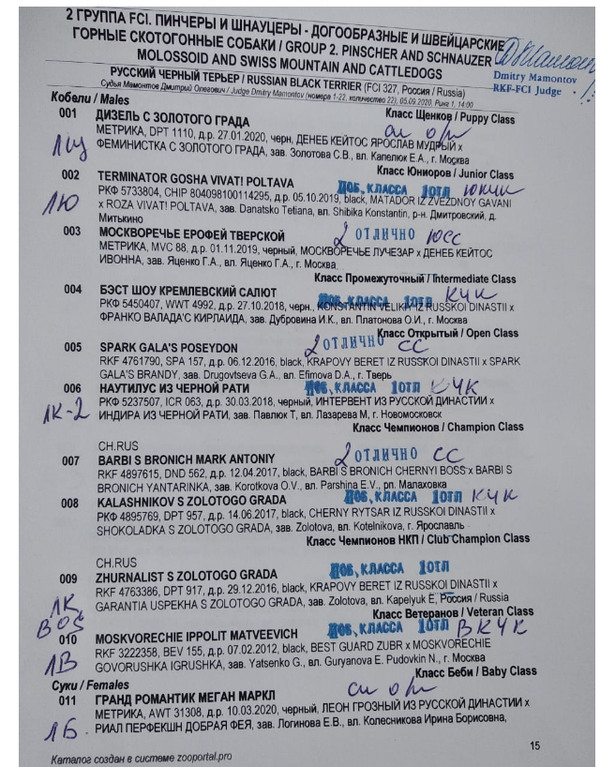 2 ГРУППА FCI. ПИНЧЕРЫ И ШНАУЦЕРЫ - ДОГООБРАЗНЫЕ И ШВЕЙЦАРСКИЕ
ГОРНЫЕ СКОТОГОННЫЕ СОБАКИ / GROUP 2. PINSCHER AND SCHNAUZER
MOLOSSOID AND SWISS MOUNTAIN AND CATTLEDOGS
Dmitry Mamontov
RKF-FCI Judge
РУССКИЙ ЧЕРНЫЙ ТЕРЬЕР / RUSSIAN BLACK TERRIER (FCI 327, Россия / Russia)
Судья Мамонтов Дмитрий Олегович / Judge Dmitry Mamontov (номера 1-22, количество 22), 05.09.2020, Ринг 1, 14:00
Кобели / Males
Класс Щенков / Puppy Class
001 ДИЗЕЛЬ С ЗОЛОТОГО ГРАДА
МЕТРИКА, DPT 1110, д.р. 27.01.2020, черн, ДЕНЕБ КЕЙТОС ЯРОСЛАВ МУДРЫЙ х
ФЕМИНИСТКА С ЗОЛОТОГО ГРАДА, зав. Золотова С.В., вл. Капелюк Е.А., г. Москва
ЛЩ
Класс Юниоров / Junior Class
002 TERMINATOR GOSHA VIVAT! POLTAVA ПОБ. КЛАССА 1 ОТЛ ЮКЧК
РКФ 5733804, CHIP 804098100114295, д.р. 05.10.2019, black, MATADOR IZ ZVEZDNOY GAVANI
х ROZA VIVAT! POLTAVA, зав. Danatsko Tetiana, вл. Shibika Konstantin, р-н. Дмитровский, д.
Митькино
ЛЮ
003 МОСКВОРЕЧЬЕ ЕРОФЕЙ ТВЕРСКОЙ 2 ОТЛИЧНО ЮСС
МЕТРИКА, MVC 88, д.р. 01.11.2019, черный, МОСКВОРЕЧЬЕ ЛУЧЕЗАР х ДЕНЕБ КЕЙТОС
ИВОННА, зав. Яценко Г.А., вл. Яценко Г.А., г. Москва
Класс Промежуточный / Intermediate Class
004 БЭСТ ШОУ КРЕМЛЕВСКИЙ САЛЮТ ПОБ. КЛАССА 1 ОТЛ КЧК
РКФ 5450407, WWT 4992, д.р. 27.10.2018, черн, KONSTANTIN VELIKIY IZ RUSSKOI DINASTII х
ФРАНКО ВАЛАДА'С КИРЛАИДА, зав. Дубровина И.К., вл. Платонова О.И., г. Москва
Класс Открытый / Open Class
005 SPARK GALA'S POSEYDON 2 ОТЛИЧНО СС
RKF 4761790, SPA 157, д.р. 06.12.2016, black, KRAPOVY BERET IZ RUSSKOI DINASTII х SPARK
GALA'S BRANDY, зав. Drugovtseva G.A., вл. Efimova D.A., г. Тверь
006 НАУТИЛУС ИЗ ЧЕРНОЙ РАТИ ПОБ. КЛАССА 1 ОТЛ КЧК
РКФ 5237507, ICR 063, д.р. 30.03.2018, черный, ИНТЕРВЕНТ ИЗ РУССКОЙ ДИНАСТИИ х
ИНДИРА ИЗ ЧЕРНОЙ РАТИ, зав. Павлюк Т, вл. Лазарева М, г. Новомосковск
ЛК-2
Класс Чемпионов / Champion Class
CH.RUS
007 BARBI S BRONICH MARK ANTONIY 2 ОТЛИЧНО СС
RKF 4897615, DND 562, д.р. 12.04.2017, black, BARBI S BRONICH CHERNYI BOSS х BARBI S
BRONICH YANTARINKA, зав. Korotkova O.V., вл. Parshina E.V., рп. Малаховка
008 KALASHNIKOV S ZOLOTOGO GRADA ПОБ. КЛАССА 1 ОТЛ КЧК
РКФ 4895769, DPT 957, д.р. 14.06.2017, black, CHERNY RYTSAR IZ RUSSKOI DINASTII х
SHOKOLADKA S ZOLOTOGO GRADA, зав. Zolotova, вл. Kotelnikova, г. Ярославль
Класс Чемпионов НКП / Club Champion Class
CH.RUS
009 ZHURNALIST S ZOLOTOGO GRADA ПОБ. КЛАССА 1 ОТЛ
RKF 4763386, DPT 917, д.р. 29.12.2016, black, KRAPOVY BERET IZ RUSSKOI DINASTII х
GARANTIA USPEKHA S ZOLOTOGO GRADA, зав. Zolotova, вл. Kapelyuk E, Россия / Russia
ЛК
BOS
Класс Ветеранов / Veteran Class
010 MOSKVORECHIE IPPOLIT MATVEEVICH ПОБ. КЛАССА 1 ОТЛ ВКЧК
RKF 3222358, BEV 155, д.р. 07.02.2012, black, BEST GUARD ZUBR х MOSKVORECHIE
GOVORUSHKA IGRUSHKA, зав. Yatsenko G., вл. Guryanova E. Pudovkin N., г. Москва
ЛВ
Класс Беби / Baby Class
Суки / Females
011 ГРАНД РОМАНТИК МЕГАН МАРКЛ
МЕТРИКА, AWT 31308, д.р. 10.03.2020, черный, ЛЕОН ГРОЗНЫЙ ИЗ РУССКОЙ ДИНАСТИИ х
РИАЛ ПЕРФЕКШН ДОБРАЯ ФЕЯ, зав. Логинова Е.В., вл. Колесникова Ирина Борисовна,
ЛБ
15
Каталог создан в системе zooportal.pro